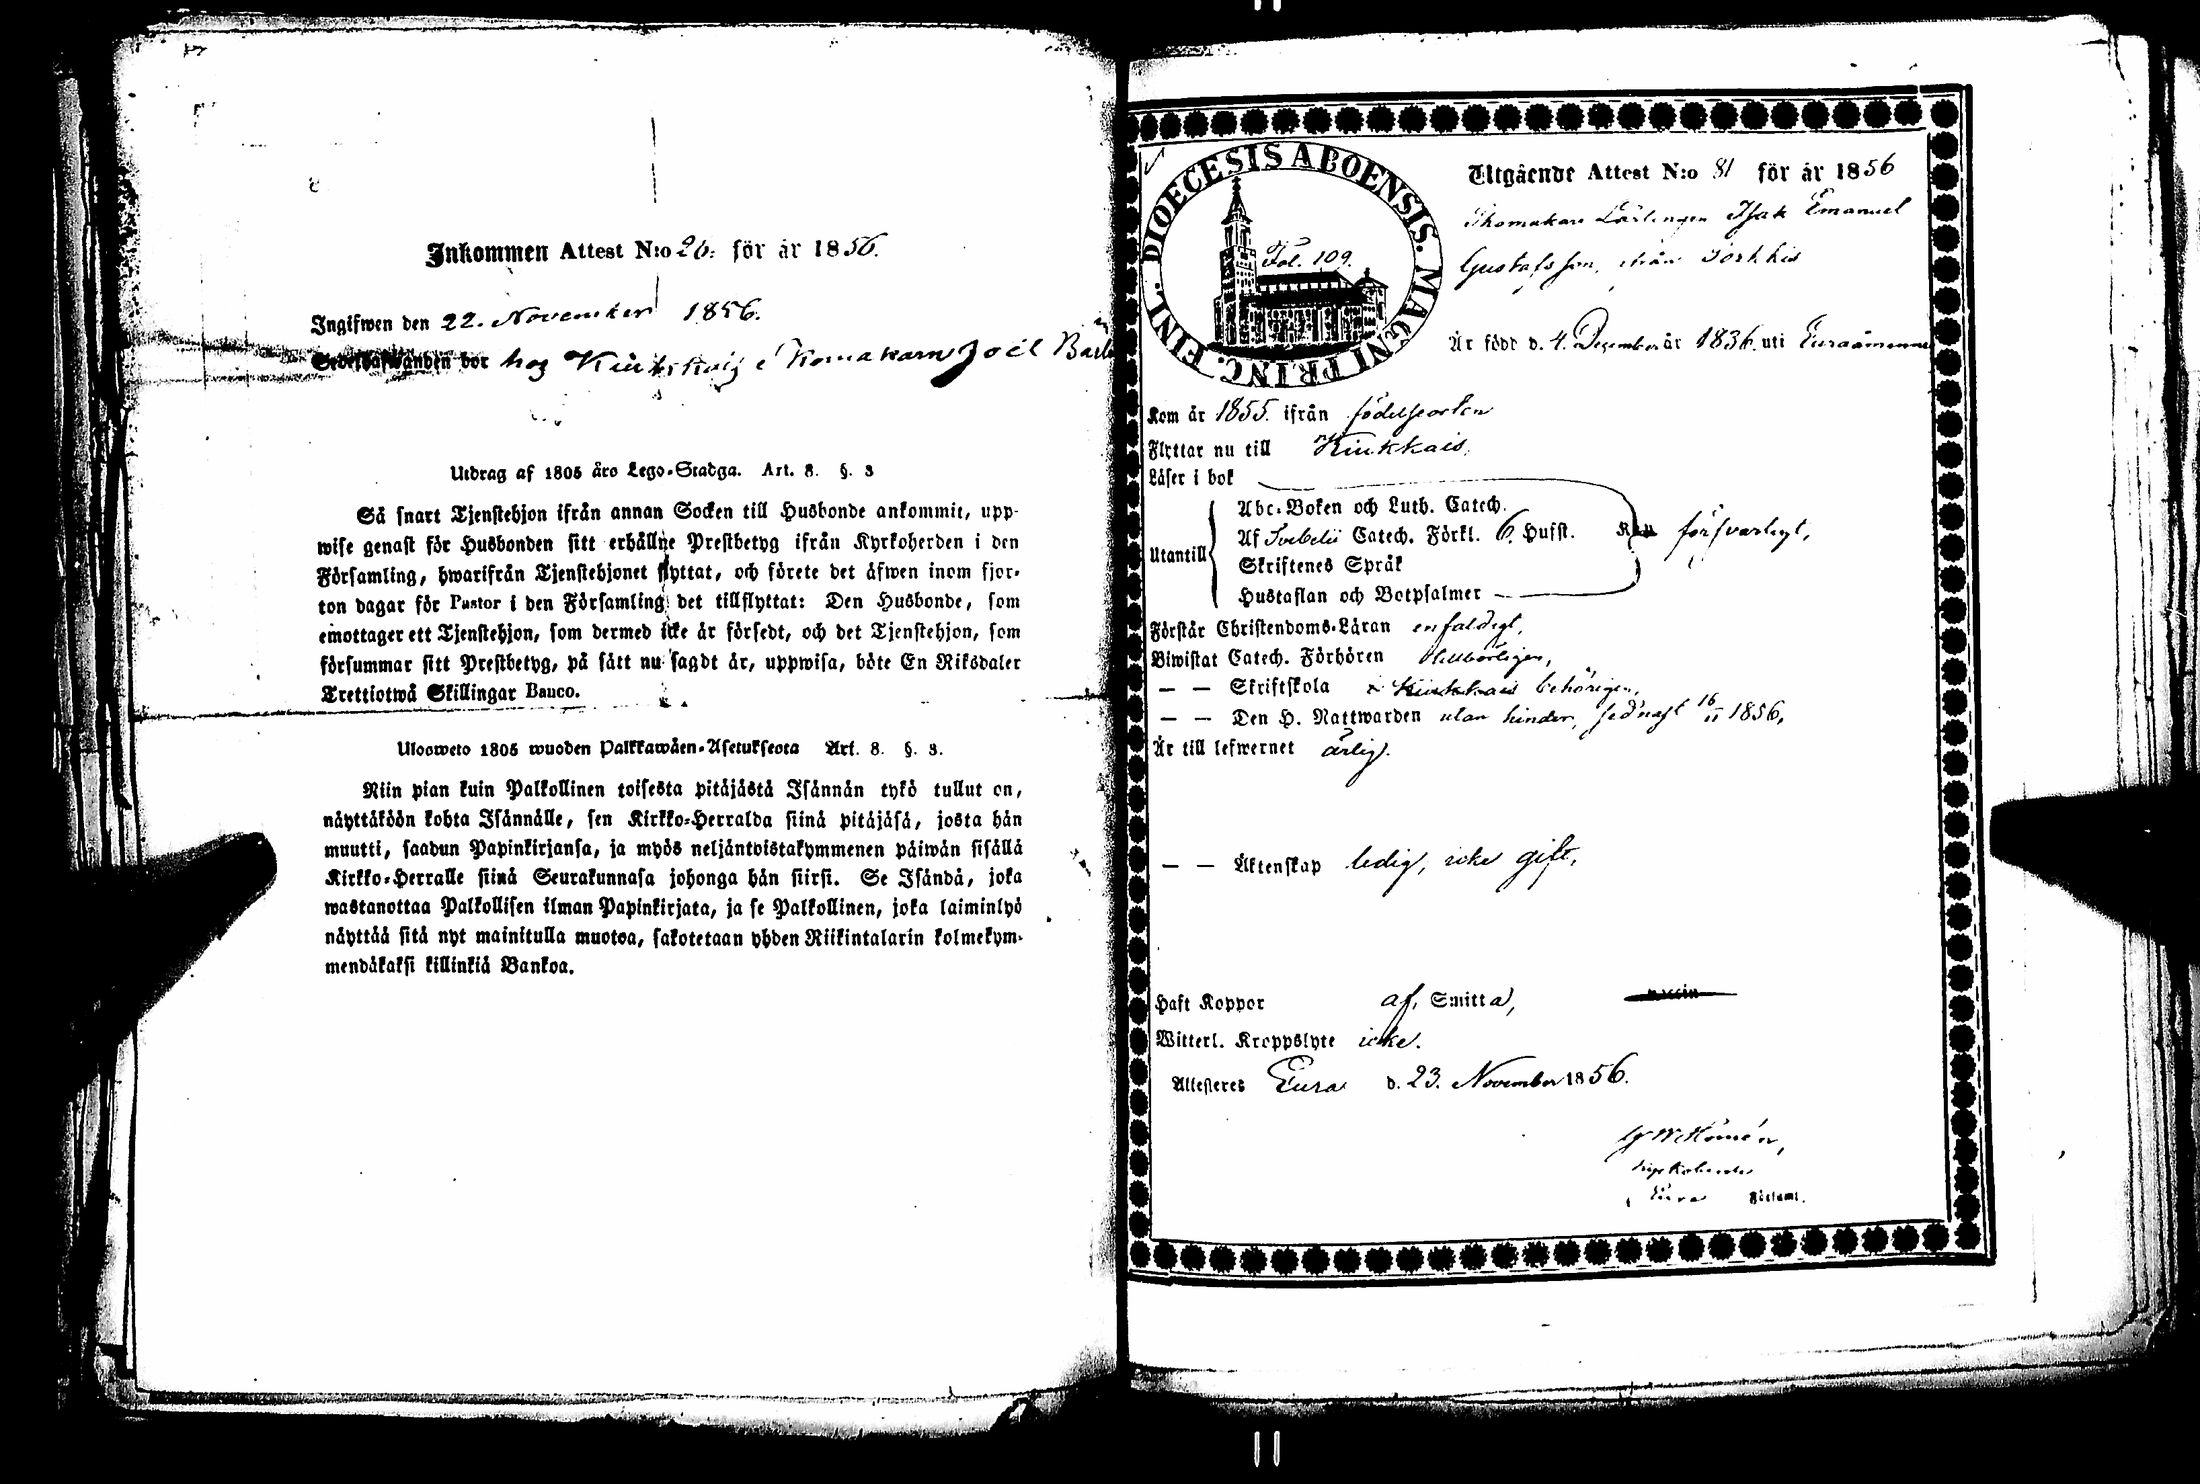 Inkommen Attest N:o 26. för år 1856.
Ingifwen den 22. November 1856.
bor hos Joel
Utdrag af 1805 års Lego-Stadga. Art. 8. §. 3
Så snart Tjenstehjon ifrån annan Socken till Husbonde ankommit, upp-
wise genast för Husbonden sitt erhållne Prestbetyg ifrån Kyrkoherden i den
Församling, hwarifrån Tjenstehjonet flyttat, och förete det äfwen inom fjor-
ton dagar för Pastor i den Församling det tillflyttat: Den Husbonde, som
emottager ett Tjenstehjon, som dermed icke är försedt, och det Tjenstehjon, som
försummar sitt Prestbetyg, på sätt nu sagdt är, uppwisa, böte En Riksdaler
Trettiotwå Skillingar Banco.
Uloosweto 1805 wuoden Palkkawäen-Asetuksesta Art. 8. §. 3.
Niin pian kuin Palkollinen toisesta pitäjästä Isännän tykö tullut on,
näyttäköön kohta Isännälle, sen Kirkko-Herralda siinä pitäjäsä, josta hän
muutti, saadun Papinkirjansa, ja myös neljäntoistakymmenen päiwän sisällä
Kirkko-Herralle siinä Seurakunnasa johonga hän siirsi. Se Isändä, joka
wastanottaa Palkollisen ilman Papinkirjata, ja se Palkollinen, joka laiminlyö
näyttää sitä nyt mainitulla muotoa, sakotetaan yhden Riikintalarin kolmekym-
mendäkaksi killinkiä Bankoa.
DIOECESIS ABOENSIS. MAGNI PRINC. FINL.
Fol. 109.
Utgående Attest N:o 81 för år 1856
Skomakare Lärlingen Isak Emanuel
Gustafsson, ifrån
Är född d. 4. December år 1836. uti Euraåminne
Kom år 1855. ifrån födelseorten
Flyttar nu till Kiukkais,
Läser i bok
Utantill
Abc-Boken och Luth. Catech.
Af Svebelii Catech. Förkl. 6. Hufst. försvarligt,
Skriftenes Språk
Hustaflan och Botpsalmer
Förstår Christendoms-Läran enfaldigt,
Biwistat Catech. Förhören
— — Skriftskola i Kiukkais behörigen,
— — Den H. Nattwarden utan hinder, sednast 16/11 1856,
Är till lefwernet ärlig.
— — Äktenskap ledig, icke gift,
Haft Koppor af Smitta,
Witterl. Kroppslyte icke.
Attesteres Eura d. 23. November 1856.
Eura Församl.